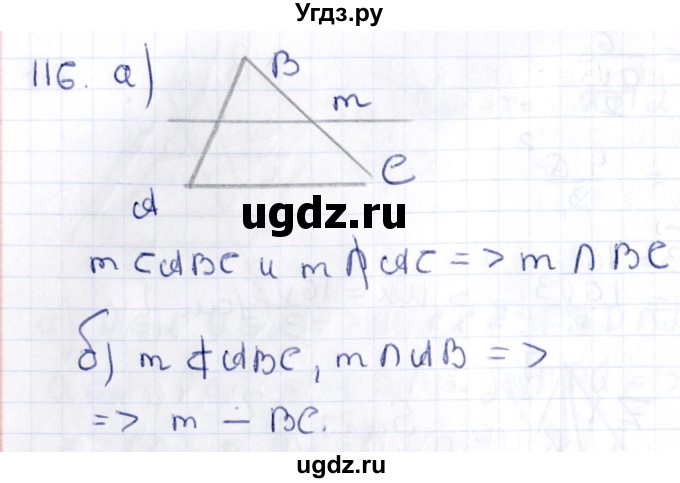 Угдз.ру
116. а)
B
m
A
C
ugdz.ru
m ⊂ ABC и m ⋔ AC => m ∩ BC
б) m ⊄ ABC, m ∩ AB =>
=> m ∸ BC.
ugdz.ru